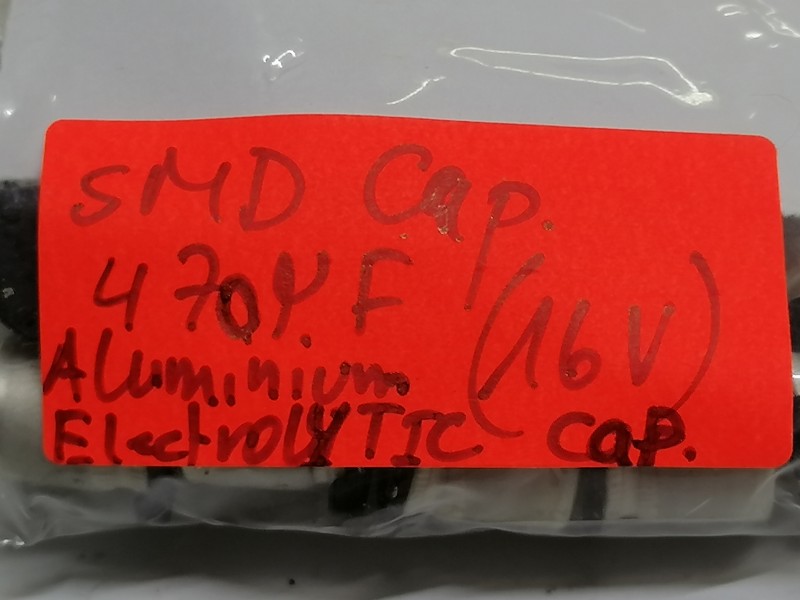 SMD Cap.
470µF (16V)
Aluminium
ElectrolYTIC cap.